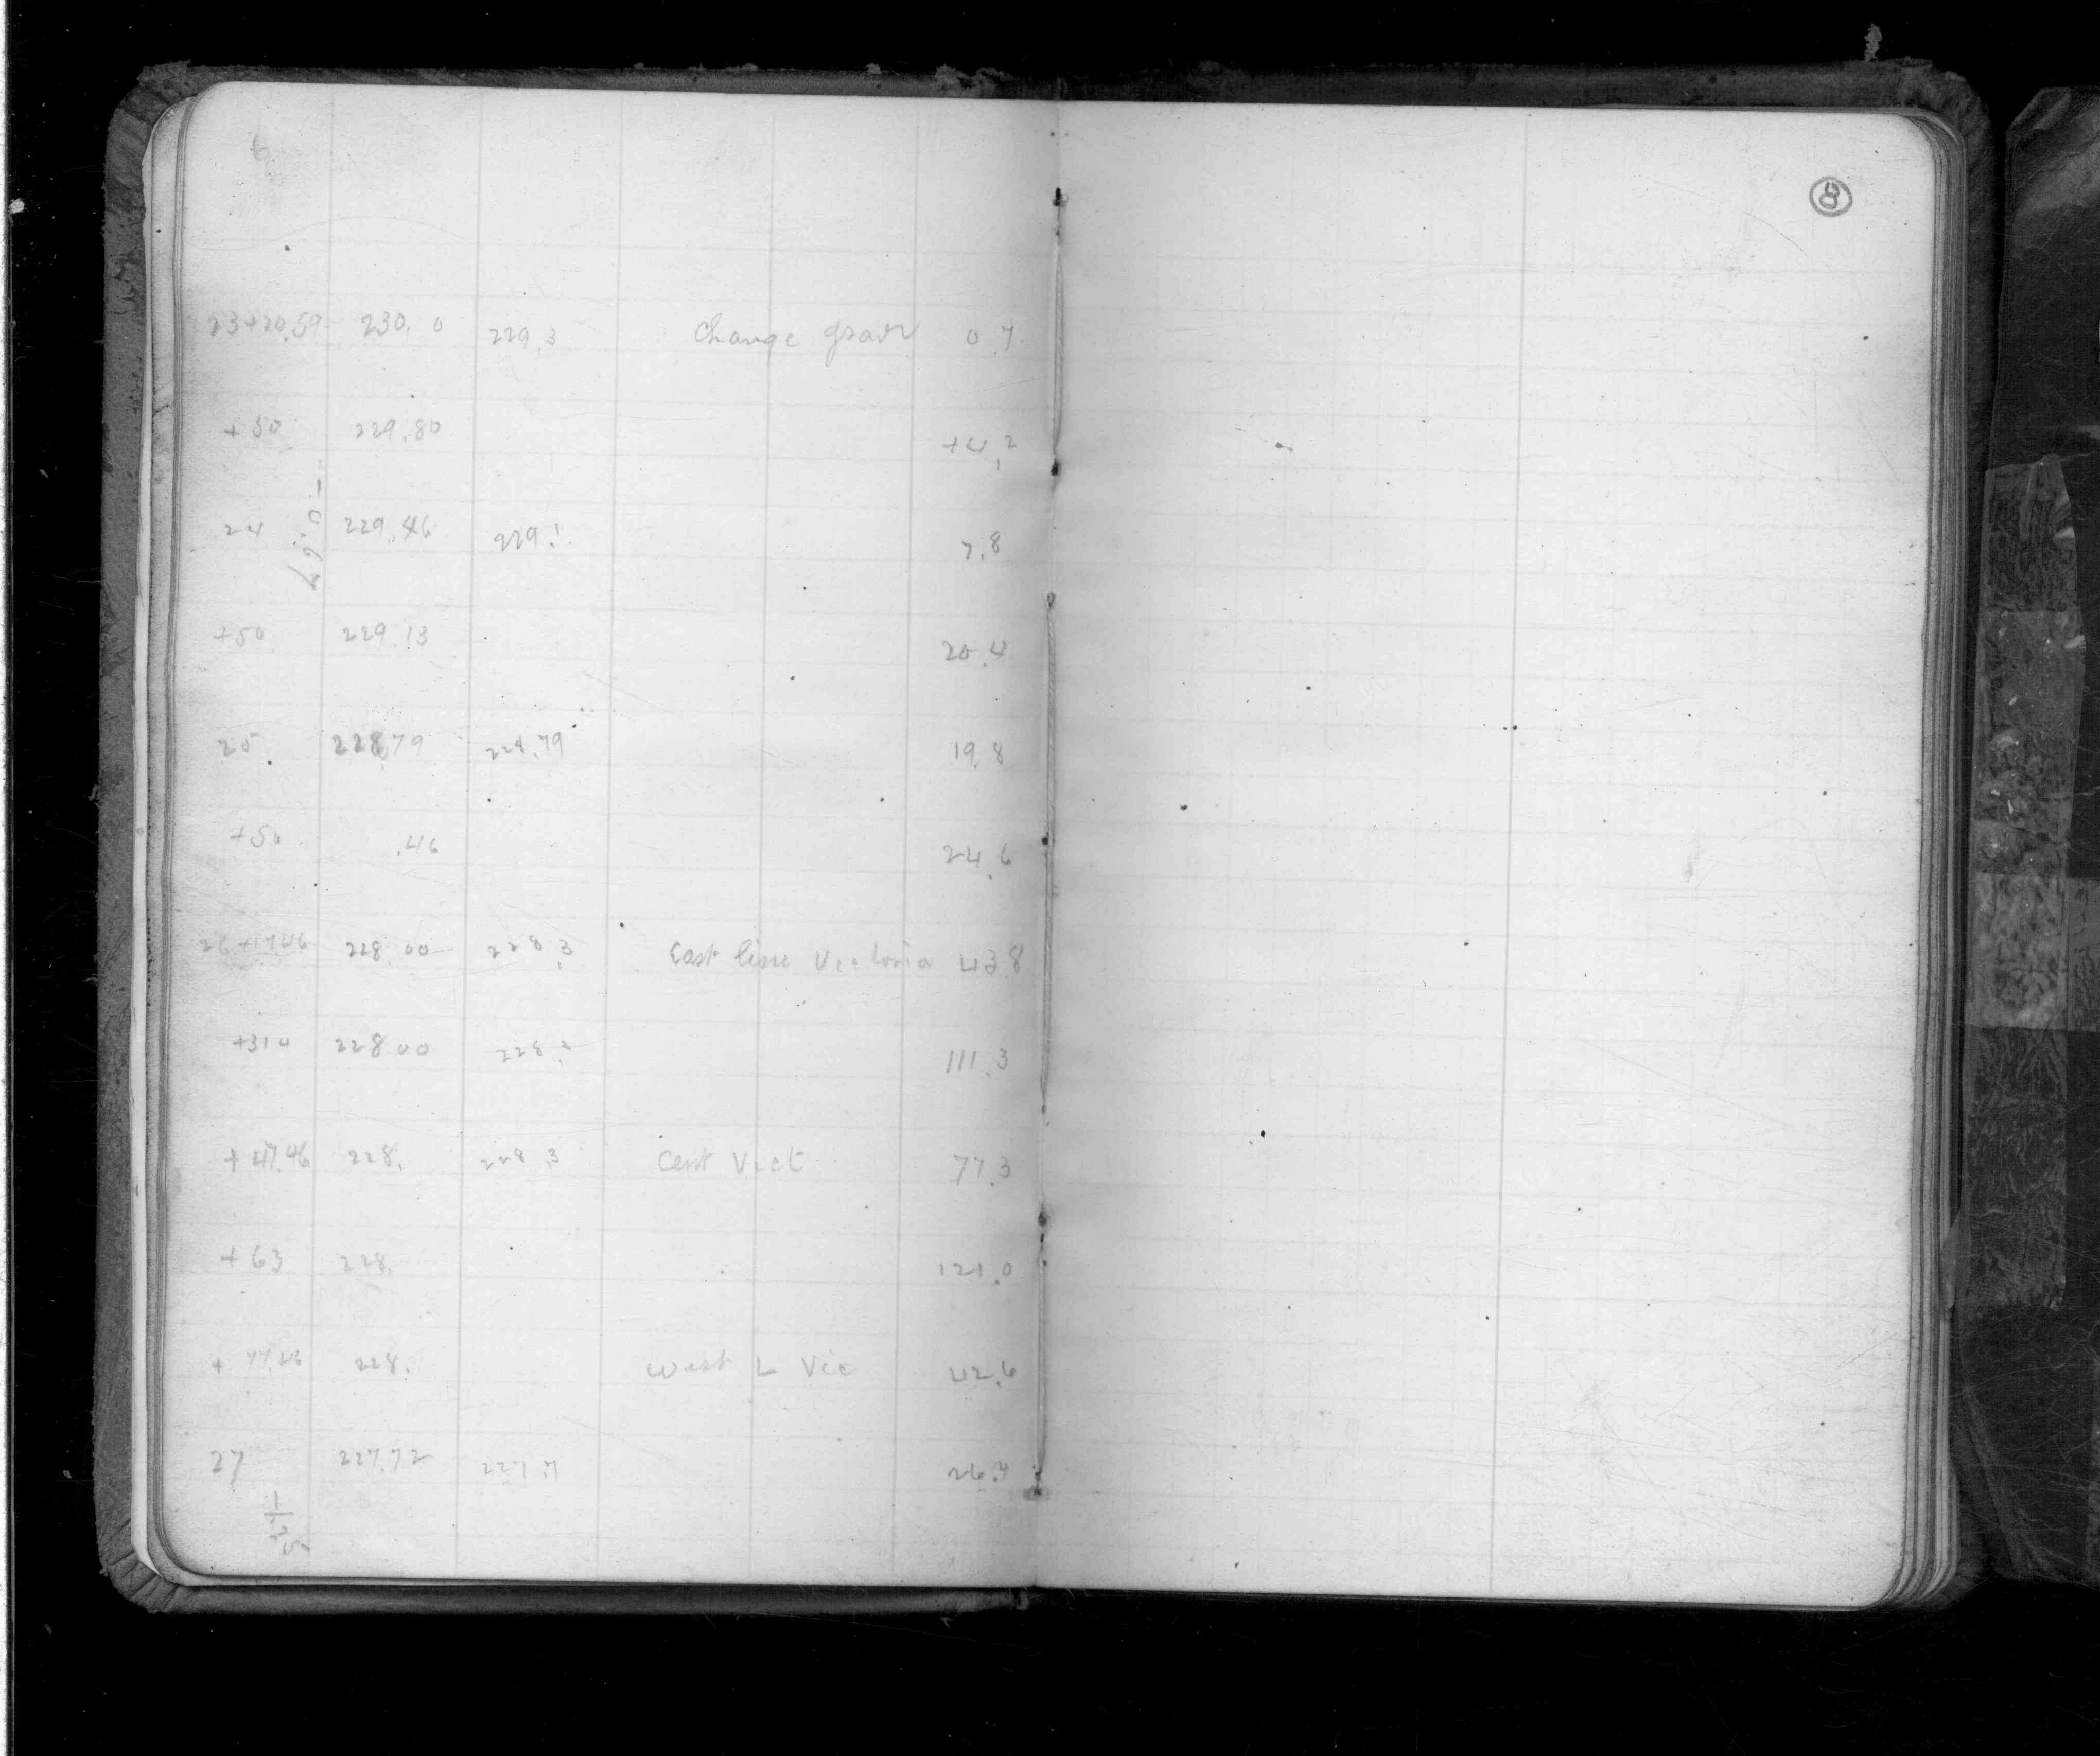 8
23+20.59 230.0 229.3 Change grade 0.7
+50 229.80 +4.2
24 229.46 229.1 7.8
- 0.67
+50 229.13 20.4
25 228.79 228.79 19.8
+50 .46 24.6
26+17.46 228.00 228.3 East line Victoria 43.8
+31.4 228.00 228.2 111.3
+47.46 228. 228.3 Cent Vict 77.3
+63 228. 121.0
+77.46 228. West L Vic 42.6
27 227.72 26.4